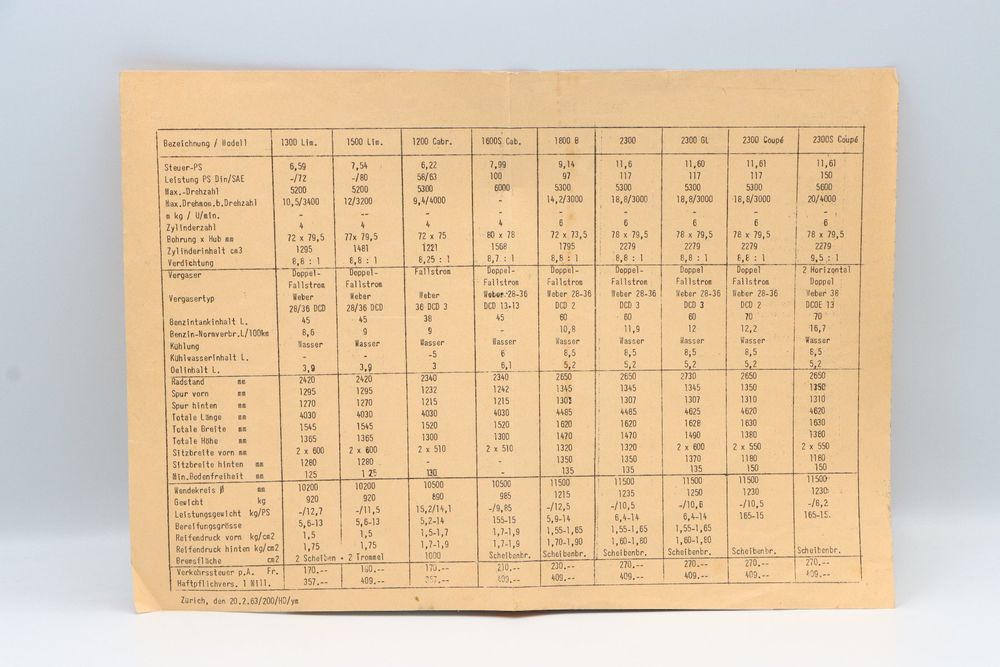 Bezeichnung / Modell 1300 Lim. 1500 Lim. 1200 Cabr. 1600S Cab. 1800 B 2300 2300 GL 2300 Coupé 2300S Coupé
Steuer-PS 6,59 7,54 6,22 7,99 9,14 11,6 11,60 11,61 11,61
Leistung PS Din/SAE -/72 -/80 58/63 100 97 117 117 117 150
Max.-Drehzahl 5200 5200 5300 6000 5300 5300 5300 5300 5600
Max.Drehmom.b.Drehzahl 10,5/3400 12/3200 9,4/4000 - 14,2/3000 18,8/3000 18,8/3000 18,8/3000 20/4000
m kg / U/min. - -- - - - - - - -
Zylinderzahl 4 4 4 4 6 6 6 6 6
Bohrung x Hub mm 72 x 79,5 77x 79,5 72 x 75 80 x 78 72 x 73,5 78 x 79,5 78 x 79,5 78 x 79,5 78 x 79,5
Zylinderinhalt cm3 1295 1481 1221 1568 1795 2279 2279 2279 2279
Verdichtung 8,8 : 1 8,8 : 1 8,25 : 1 8,7 : 1 8,8 : 1 8,8 : 1 8,8 : 1 8,8 : 1 9,5 : 1
Vergaser Doppel- Doppel- Fallstrom Doppel- Doppel- Doppel- Doppel- Doppel 2 Horizontal
Fallstrom Fallstrom Fallstrom Fallstrom Fallstrom Fallstrom Fallstrom Doppel
Vergasertyp Weber Weber Weber Weber 28-36 Weber 28-36 Weber 28-36 Weber 28-36 Weber 28-36 Weber 38
28/36 DCD 28/36 DCD 36 DCD 3 DCD 13-13 DCD 2 DCD 3 DCD 3 DCD 2 DCOE 13
Benzintankinhalt L. 45 45 38 45 60 60 60 70 70
Benzin-Normverbr.L/100km 8,6 9 9 - 10,8 11,9 12 12,2 16,7
Kühlung Wasser Wasser Wasser Wasser Wasser Wasser Wasser Wasser Wasser
Kühlwasserinhalt L. - - -5 6 8,5 8,5 8,5 8,5 8,5
Oelinhalt L. 3,9 3,9 3 6,1 5,2 5,2 5,2 5,2 5,2
Radstand mm 2420 2420 2340 2340 2650 2650 2730 2650 2650
Spur vorn mm 1295 1295 1232 1242 1345 1345 1345 1350 1350
Spur hinten mm 1270 1270 1215 1215 1307 1307 1310 1310
Totale Länge mm 4030 4030 4030 4030 4485 4485 4625 4620 4620
Totale Breite mm 1545 1545 1520 1520 1620 1620 1628 1630 1630
Totale Höhe mm 1365 1365 1300 1300 1470 1470 1490 1380 1380
Sitzbreite vorn mm 2 x 600 2 x 600 2 x 510 2 x 510 1320 1320 2 x 600 2 x 550 2 x 550
Sitzbreite hinten mm 1280 1280 - - 1350 1350 1370 1180 1180
Min.Bodenfreiheit mm 125 125 130 - 135 135 135 150 150
Wendekreis Ø mm 10200 10200 10500 10500 11500 11500 11500 11500 11500
Gewicht kg 920 920 890 985 1215 1235 1250 1230 1230
Leistungsgewicht kg/PS -/12,7 -/11,5 15,2/14,1 -/9,85 -/12,5 -/10,5 -/10,6 -/10,5 -/8,2
Bereifungsgrösse 5,6-13 5,6-13 5,2-14 155-15 5,9-14 6,4-14 6,4-14 165-15 165-15.
Reifendruck vorn kg/cm2 1,5 1,5 1,5-1,7 1,7-1,9 1,55-1,65 1,55-1,65 1,55-1,65
Reifendruck hinten kg/cm2 1,75 1,75 1,7-1,9 1,7-1,9 1,70-1,90 1,60-1,80 1,60-1,80
Bremsfläche cm2 2 Scheiben + 2 Trommel 1000 Scheibenbr. Scheibenbr. Scheibenbr. Scheibenbr. Scheibenbr. Scheibenbr.
Verkehrssteuer p.A. Fr. 170.-- 190.-- 170.-- 210.-- 230.-- 270.-- 270.-- 270.-- 270.--
Haftpflichvers. 1 Mill. 357.-- 409.-- 357.-- 409.-- 409.-- 409.-- 409.-- 409.-- 409.--
Zürich, den 20.2.63/200/HD/ym